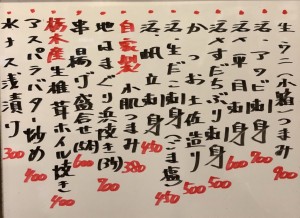 生ウニ(小箱)つまみ 900
活アワビ刺身
刺身 600
すだちぶり刺身 500
かつお土佐造り 500
活生だこ刺身(ごま塩) 450
活帆立刺身
自家製 小肌つまみ 380
地はまぐり浜焼き(3ケ) 700
串揚げ盛合せ(5本) 600
栃木産生椎茸ホイル焼き 400
アスパラバター炒め 400
水ナス浅漬り 300